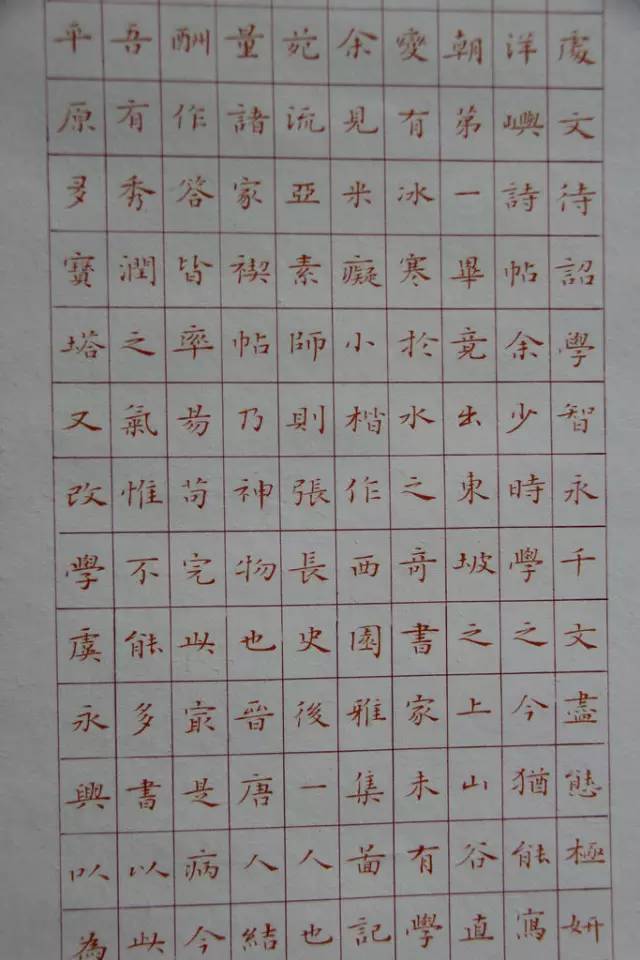 處文待詔學智永千文盡態極妍
洋嶼詩帖余少時學之今猶能寫
朝第一畢竟出東坡之上山谷直
變有冰寒於水之奇書家未有學
余見米癡小楷作西園雅集圖記
苑流亞素師則張長史後一人也
量諸家禊帖乃神物也晉唐人結
酬作答皆率易苟完此最是病今
吾有秀潤之氣惟不能多書以此
平原多寶塔又改學虞永興以為